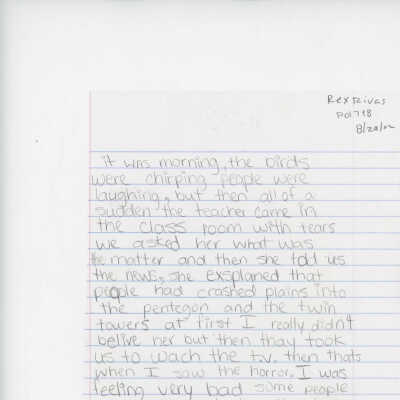 Rex Rivas
8/20/02
it was morning, the birds
were chirping people were
laughing, but then all of a
sudden the teacher came in
the class room with tears
we asked her what was
the matter and then she told us
the news, she exsplaned that
people had crashed plains into
the pentegon and the twin
towers at first I really didn't
belive her but then thay took
us to wach the t.v. then thats
when I saw the horror. I was
feeling very bad some people